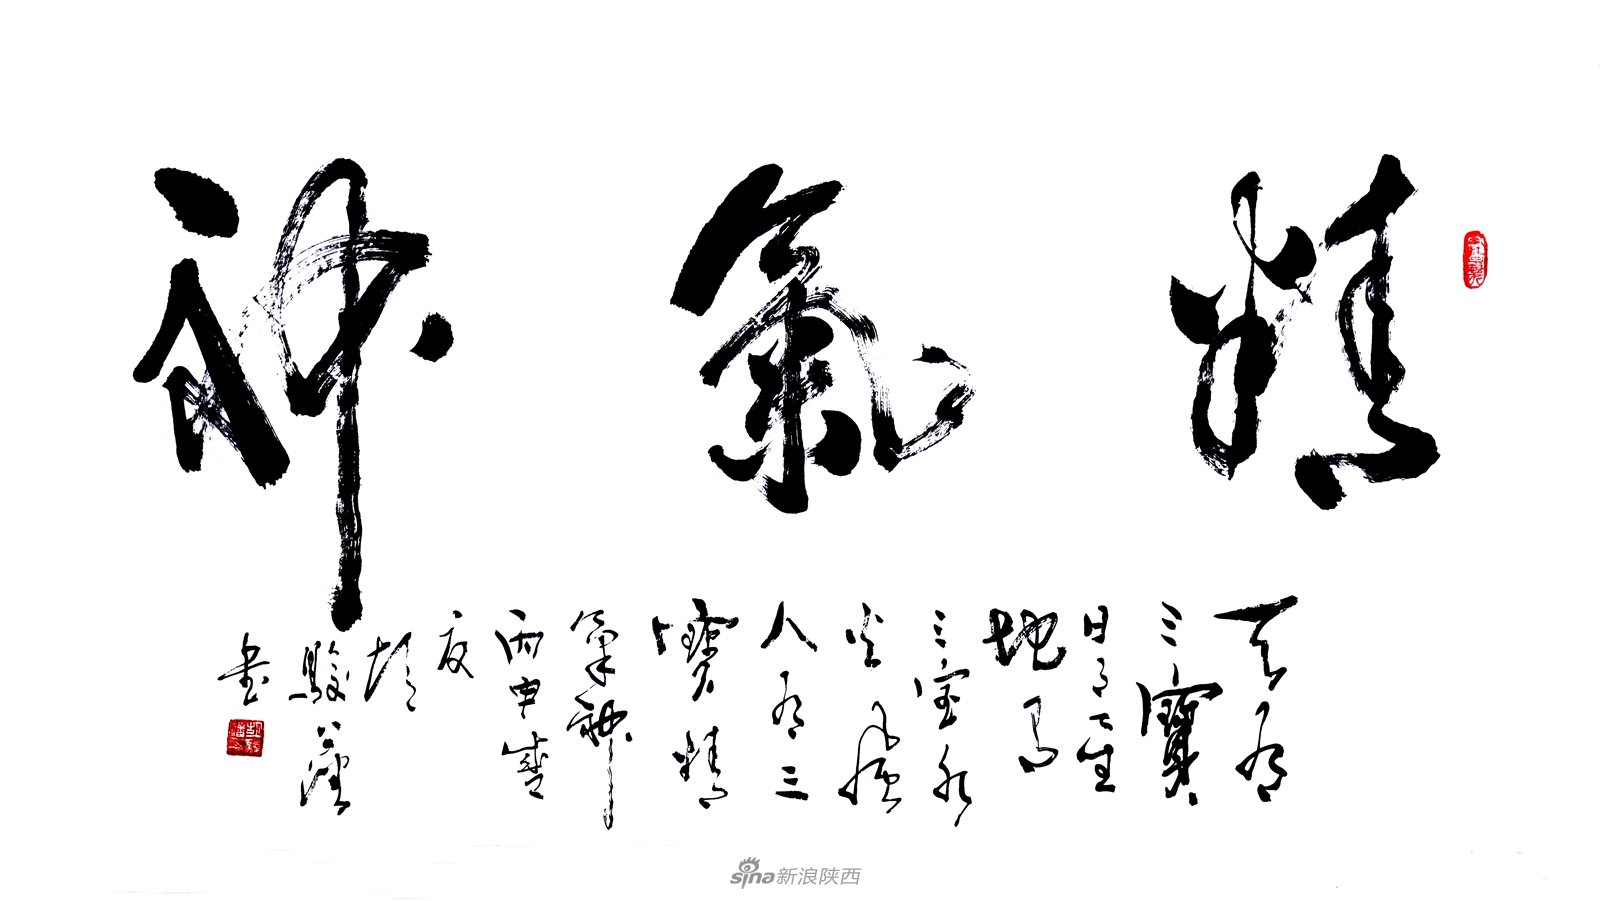 精氣神
天有
三寶
日月星
地有
三宝水
火風
人有三
寶精
氣神
丙申盛
夏
胡
駿
書
sina新浪陕西